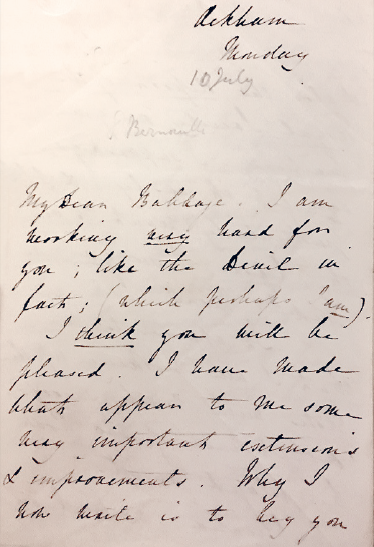 Ockham
Monday
10 July
Bernoulli
My Dear Babbage. I am
working very hard for
you; like the Devil in
fact; (which perhaps I am).
I think you will be
pleased. I have made
what appear to me some
very important extensions
& improvements. Why I
now write is to beg you